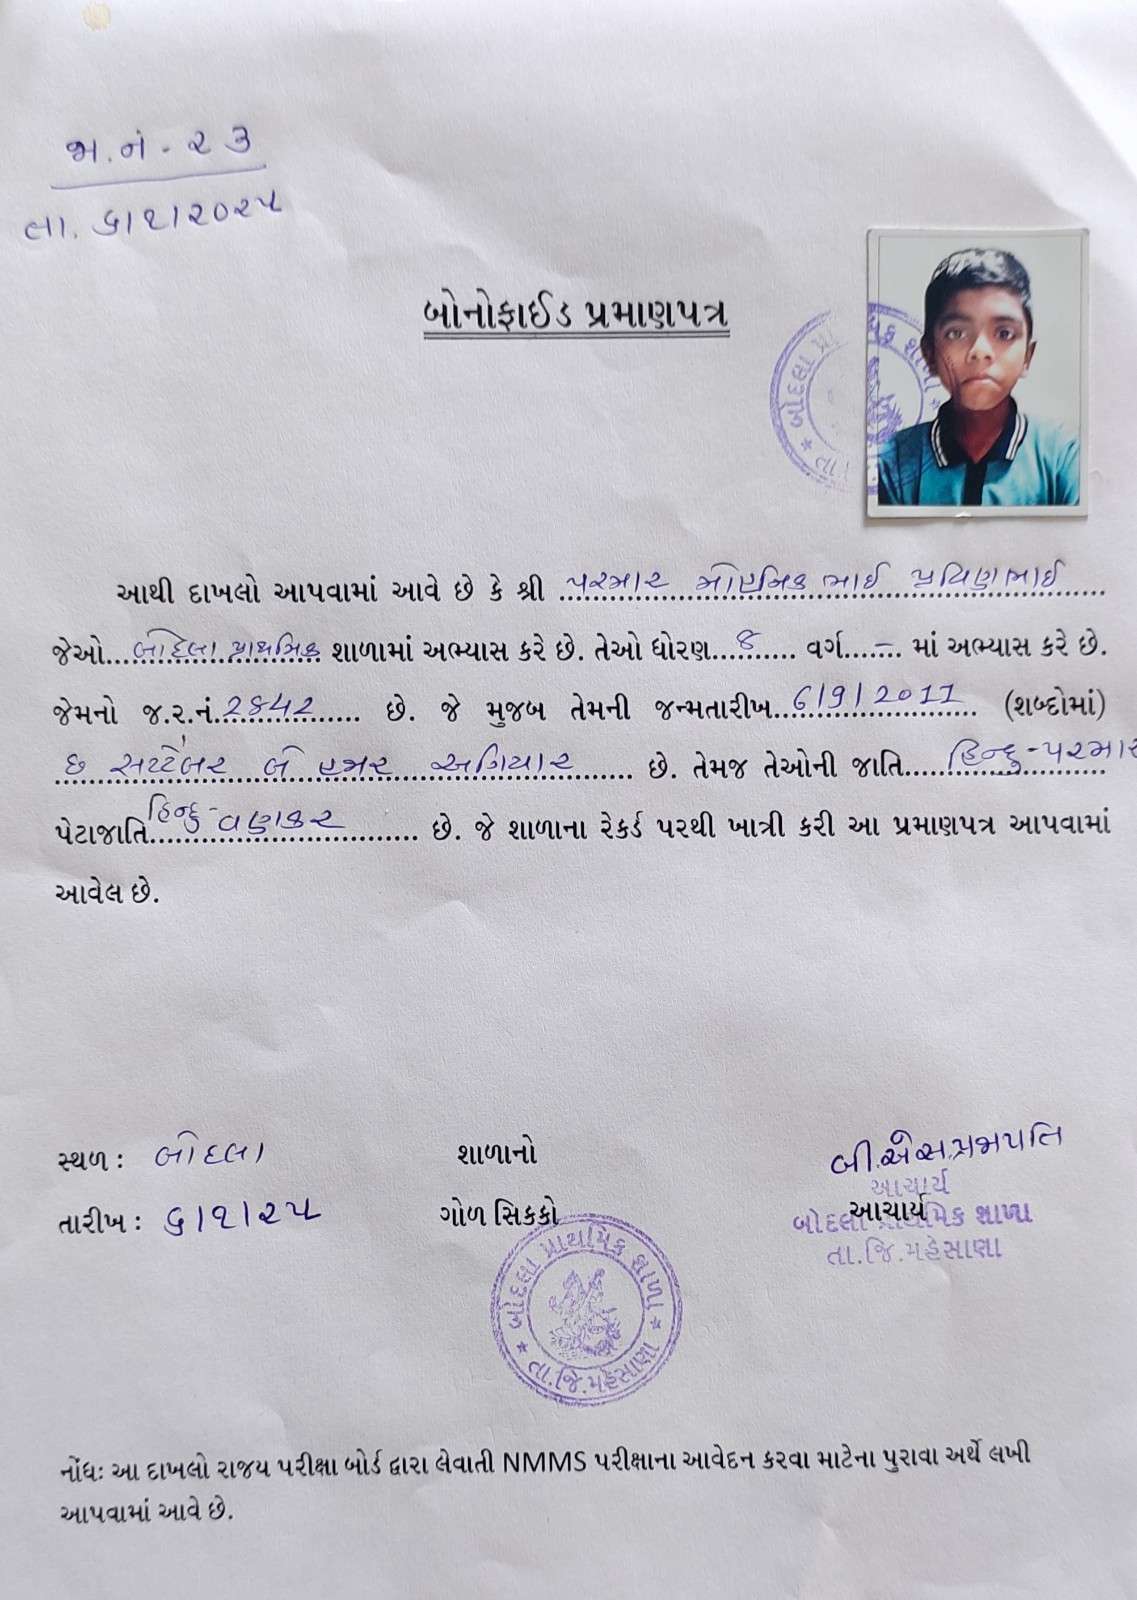 જા.નં - ૨૩
તા. ૬/૧/૨૦૨૫
બોનોફાઈડ પ્રમાણપત્ર
આથી દાખલો આપવામાં આવે છે કે શ્રી પરમાર ભાઈ પ્રવિણભાઈ
જેઓ બોદલા પ્રાથમિક શાળામાં અભ્યાસ કરે છે. તેઓ ધોરણ 8 વર્ગ - માં અભ્યાસ કરે છે.
જેમનો જ.ર.નં. 2842 છે. જે મુજબ તેમની જન્મતારીખ 6/9/2011 (શબ્દોમાં)
છ સપ્ટેંબર બે હજાર અગિયાર છે. તેમજ તેઓની જાતિ હિન્દુ-પરમાર
પેટાજાતિ હિન્દુ-વણકર છે. જે શાળાના રેકર્ડ પરથી ખાત્રી કરી આ પ્રમાણપત્ર આપવામાં
આવેલ છે.
સ્થળ : બોદલા શાળાનો બી.એસ.પ્રજાપતિ
આચાર્ય
તારીખ : ૬/૧/૨૫ ગોળ સિક્કો આચાર્ય
બોદલા પ્રાથમિક શાળા
તા.જિ.મહેસાણા
* બોદલા પ્રાથમિક શાળા * તા.જિ.મહેસાણા
નોંધઃ આ દાખલો રાજય પરીક્ષા બોર્ડ દ્વારા લેવાતી NMMS પરીક્ષાના આવેદન કરવા માટેના પુરાવા અર્થે લખી
આપવામાં આવે છે.